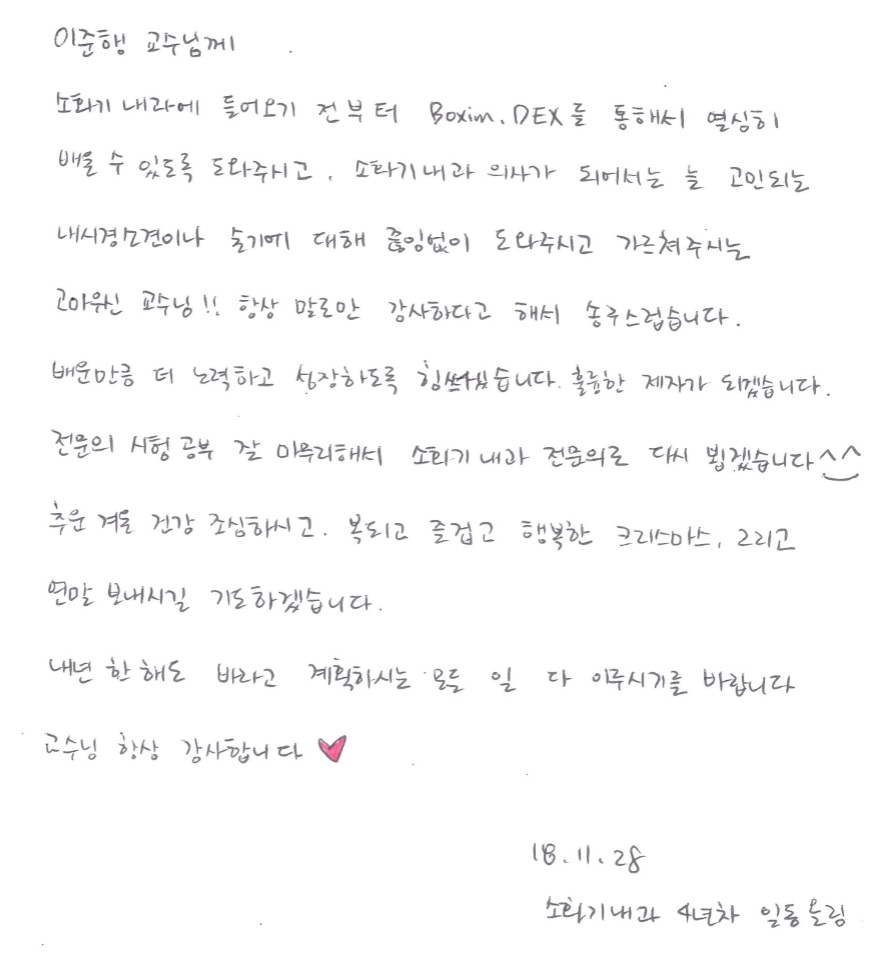 이준행 교수님께
소화기 내과에 들어오기 전부터 Boxim, DEX를 통해서 열심히
배울 수 있도록 도와주시고, 소화기내과 의사가 되어서는 늘 고민되는
내시경소견이나 술기에 대해 끊임없이 도와주시고 가르쳐주시는
고마우신 교수님!! 항상 말로만 감사하다고 해서 송구스럽습니다.
배운만큼 더 노력하고 성장하도록 힘쓰겠습니다. 훌륭한 제자가 되겠습니다.
전문의 시험공부 잘 마무리해서 소화기내과 전문의로 다시 뵙겠습니다^^
추운 겨울 건강 조심하시고, 복되고 즐겁고 행복한 크리스마스, 그리고
연말 보내시길 기도하겠습니다.
내년 한해도 바라고 계획하시는 모든 일 다 이루시기를 바랍니다
교수님 항상 감사합니다
18.11.28
소화기내과 4년차 일동올림